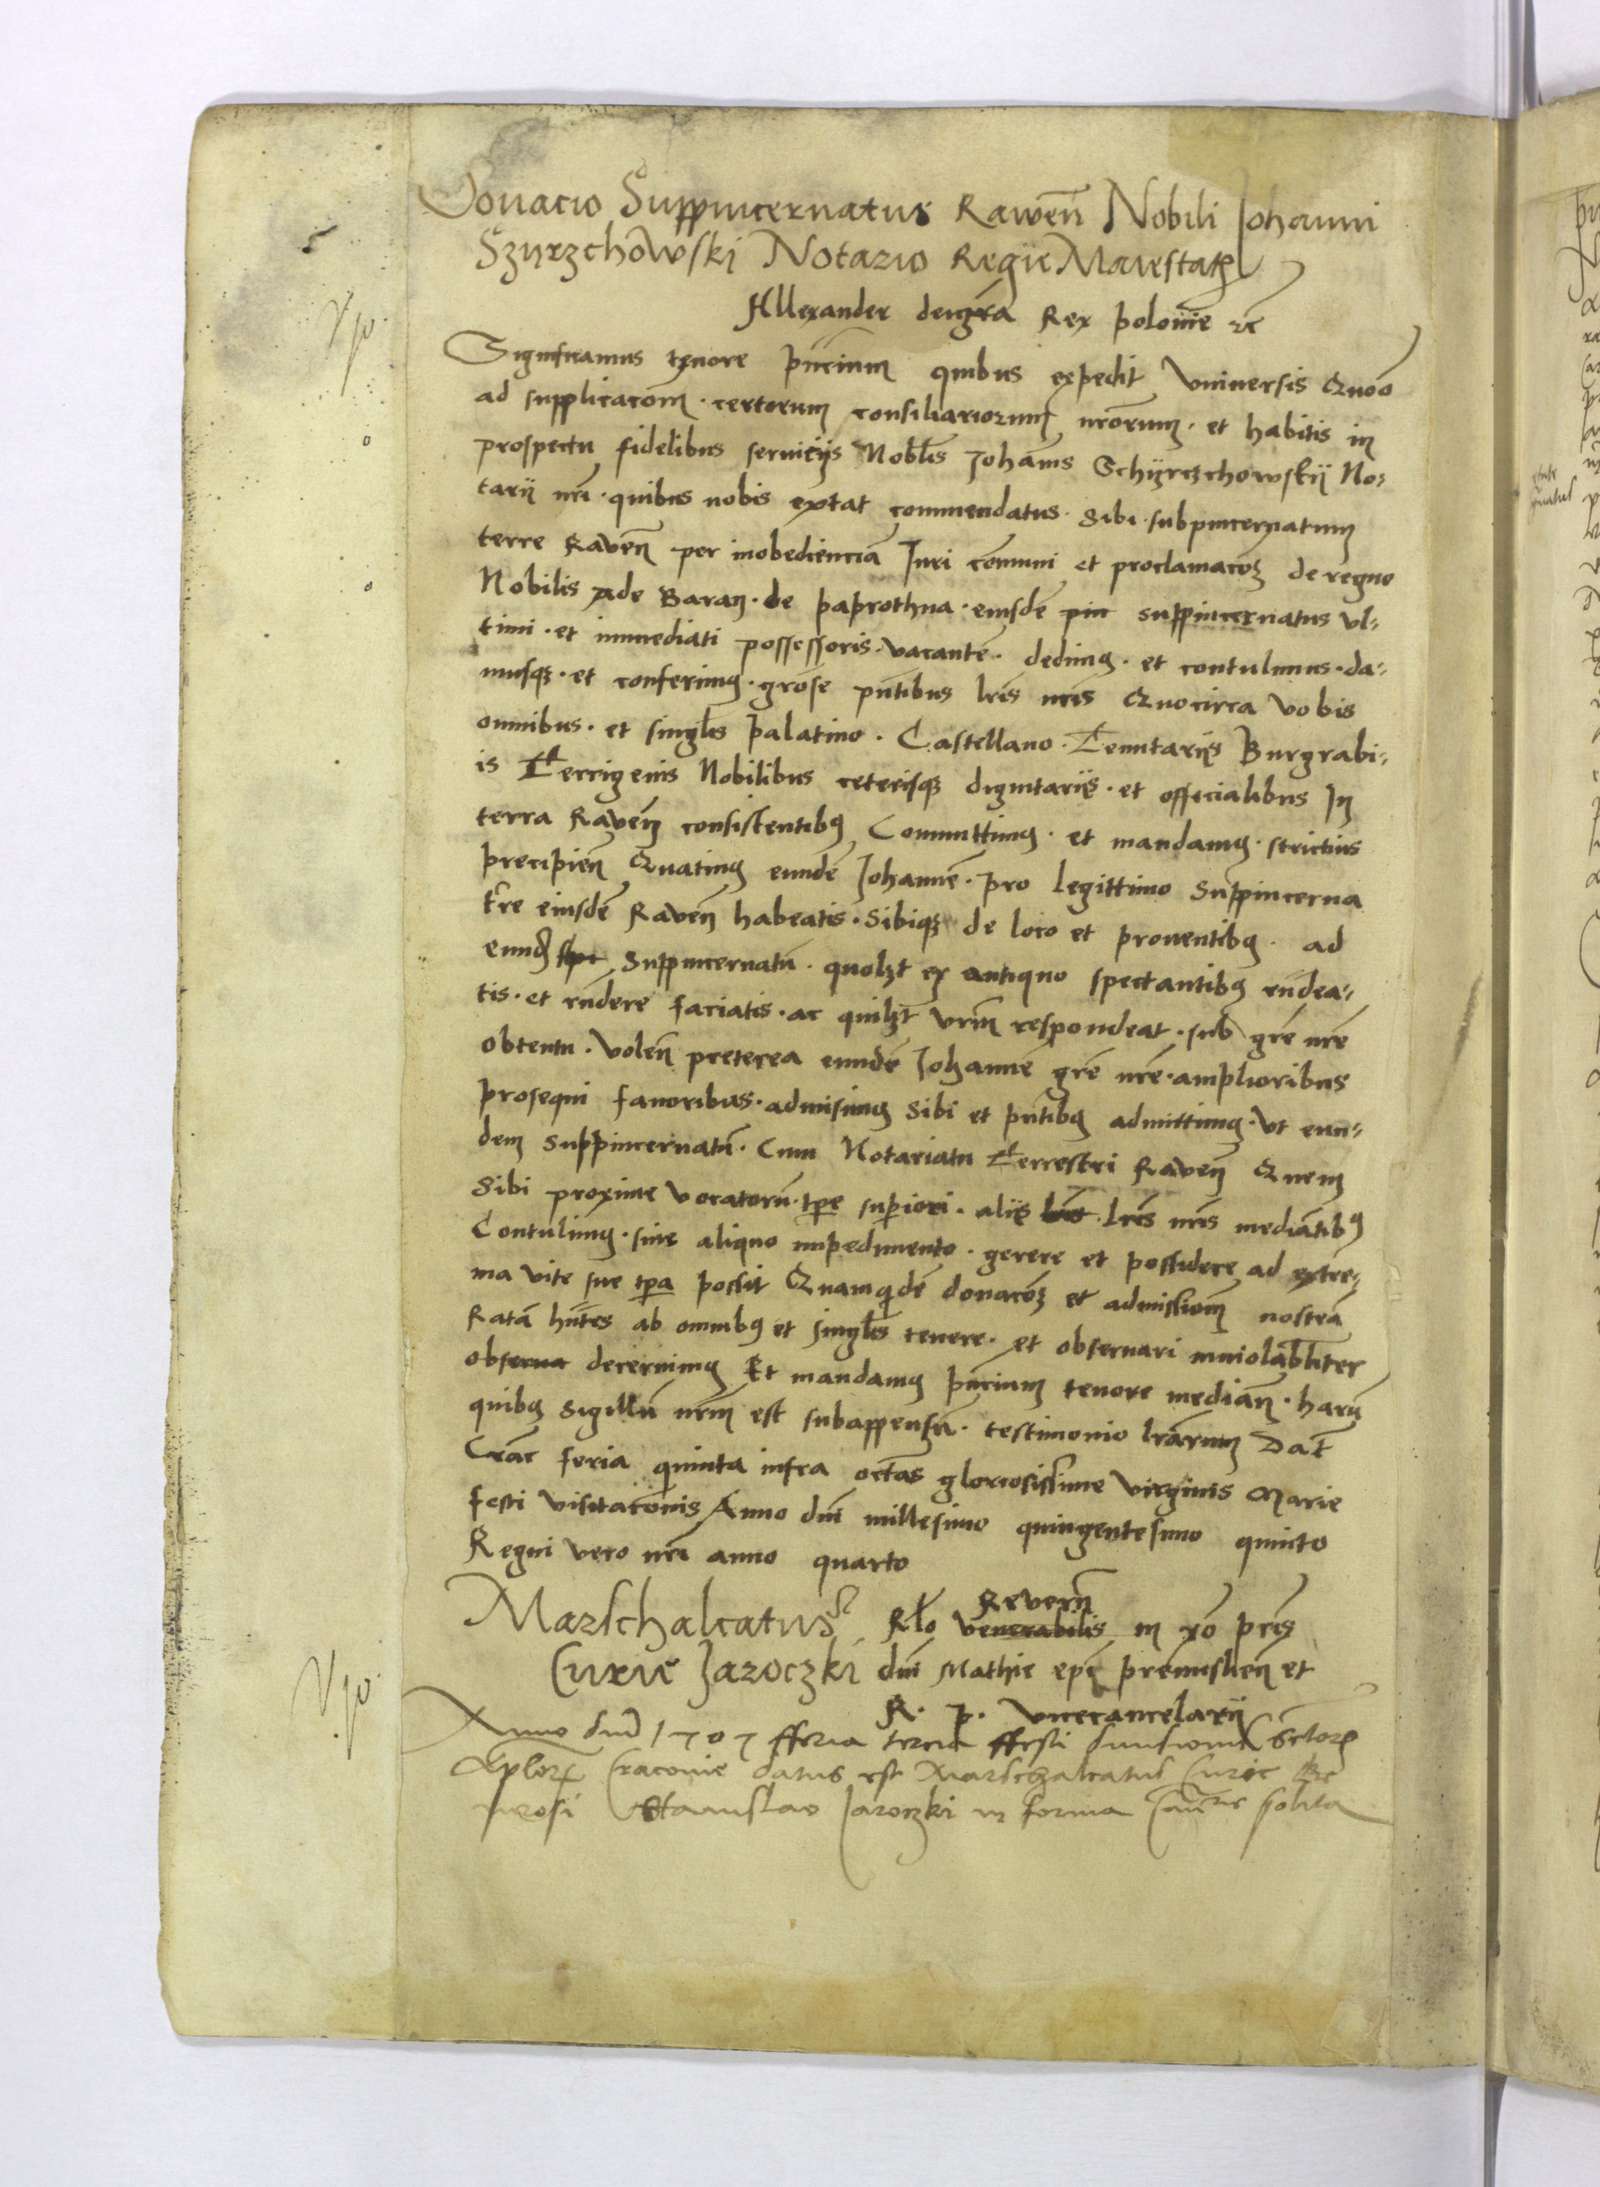 Donacio Suppincernatus Rawen̄ Nobili Johanni
Szyrzchowski Notario Regie Maiestatꝭ
Allexander dei gr̄a Rex polonie ꝛc̄
Significamus tenore pn̄cium quibus expedit Vniversis Quō
ad supplicacōem · certorum consiliariorum nr̄orum · et habitis in
prospectu fidelibus serviciis Nobl̄is Johānis Schyrczchowskÿ No-
tarii nrī · quibus nobis extat commendatus · Sibi · subpincernatum
terre Raven̄ per inobedienciā Juri cōmuni et proclamacōꝫ de regno
Nobilis Ade Baran · de paprothna · eiusdē pin suppincernatus vl-
timi · et immediati possessoris · vacantē · dedimꝰ · et contulimus · da-
musqꝫ · et conferimꝰ · grōse pn̄tibus lr̄is nr̄is Quocirca vobis
omnibus · et singl̄is palatino · Castellano · Tenutariis Burgrabi-
is Terrigenis Nobilibus ceterisqꝫ dignitariis · et officialibus In
terra Raven̄ consistentibꝰ Committimꝰ · et mandamꝰ · strictius
precipien̄ Quatinꝰ eundē Johannē · pro legittimo Suppincerna
tr̄e eiusdē Raven̄ habeatis · Sibiqꝫ de loco et proventibꝰ · ad
eundꝫ Suppincernatū · quolꝫt ex antiquo spectantibꝰ rn̄dea-
tis · et rn̄dere faciatis · ac quilꝫt vr̄m respondeat · sub gr̄e nr̄e
obtentu · Volen̄ preterea eundē Johannē gr̄e nr̄e · amplioribus
prosequi favoribus · admisimꝰ Sibi et pn̄tibꝰ admittimꝰ · Vt eun-
dem Suppincernatū · Cum Notariatu Terrestri Raven̄ Quem
Sibi proxime vocatorū · tp̄e superiori · aliis · lr̄is nr̄is mediātibꝰ
Contulimꝰ · sine aliquo impedimento · gerere et possidere ad extre-
ma vite sue tp̄a possit Quamquidē donacōꝫ et admissionem nostrā
Ratā hn̄tes ab omnibꝰ et singl̄is tenere · et observari inviolabl̄iter
observa decernimꝰ Et mandamꝰ pn̄cium tenore median̄ · harū
quibꝰ Sigillū nr̄m est subappensū · testimonio lr̄arum Dat̄
Crac̄ feria quinta infra octās gloriosissime virginis Marie
festi visitacōnis Anno dn̄i millesimo quingentesimo quinto
Regni vero nr̄i anno quarto
Reveren̄
Marschalcatus Rl̄o venerabilis in xp̄o pr̄is
Curie Jaroczki dn̄i Mathie ep̄i premislien̄ et
R. p. vicecancelarii
Anno dn̄i 1505 fferia tercia ffesti divisionis Sctorꝝ
Apl̄orꝝ Cracovie datus est Marschalcatus Curie Ge
nerosi Stanislao Jaroczki in forma Cancᵉ solita